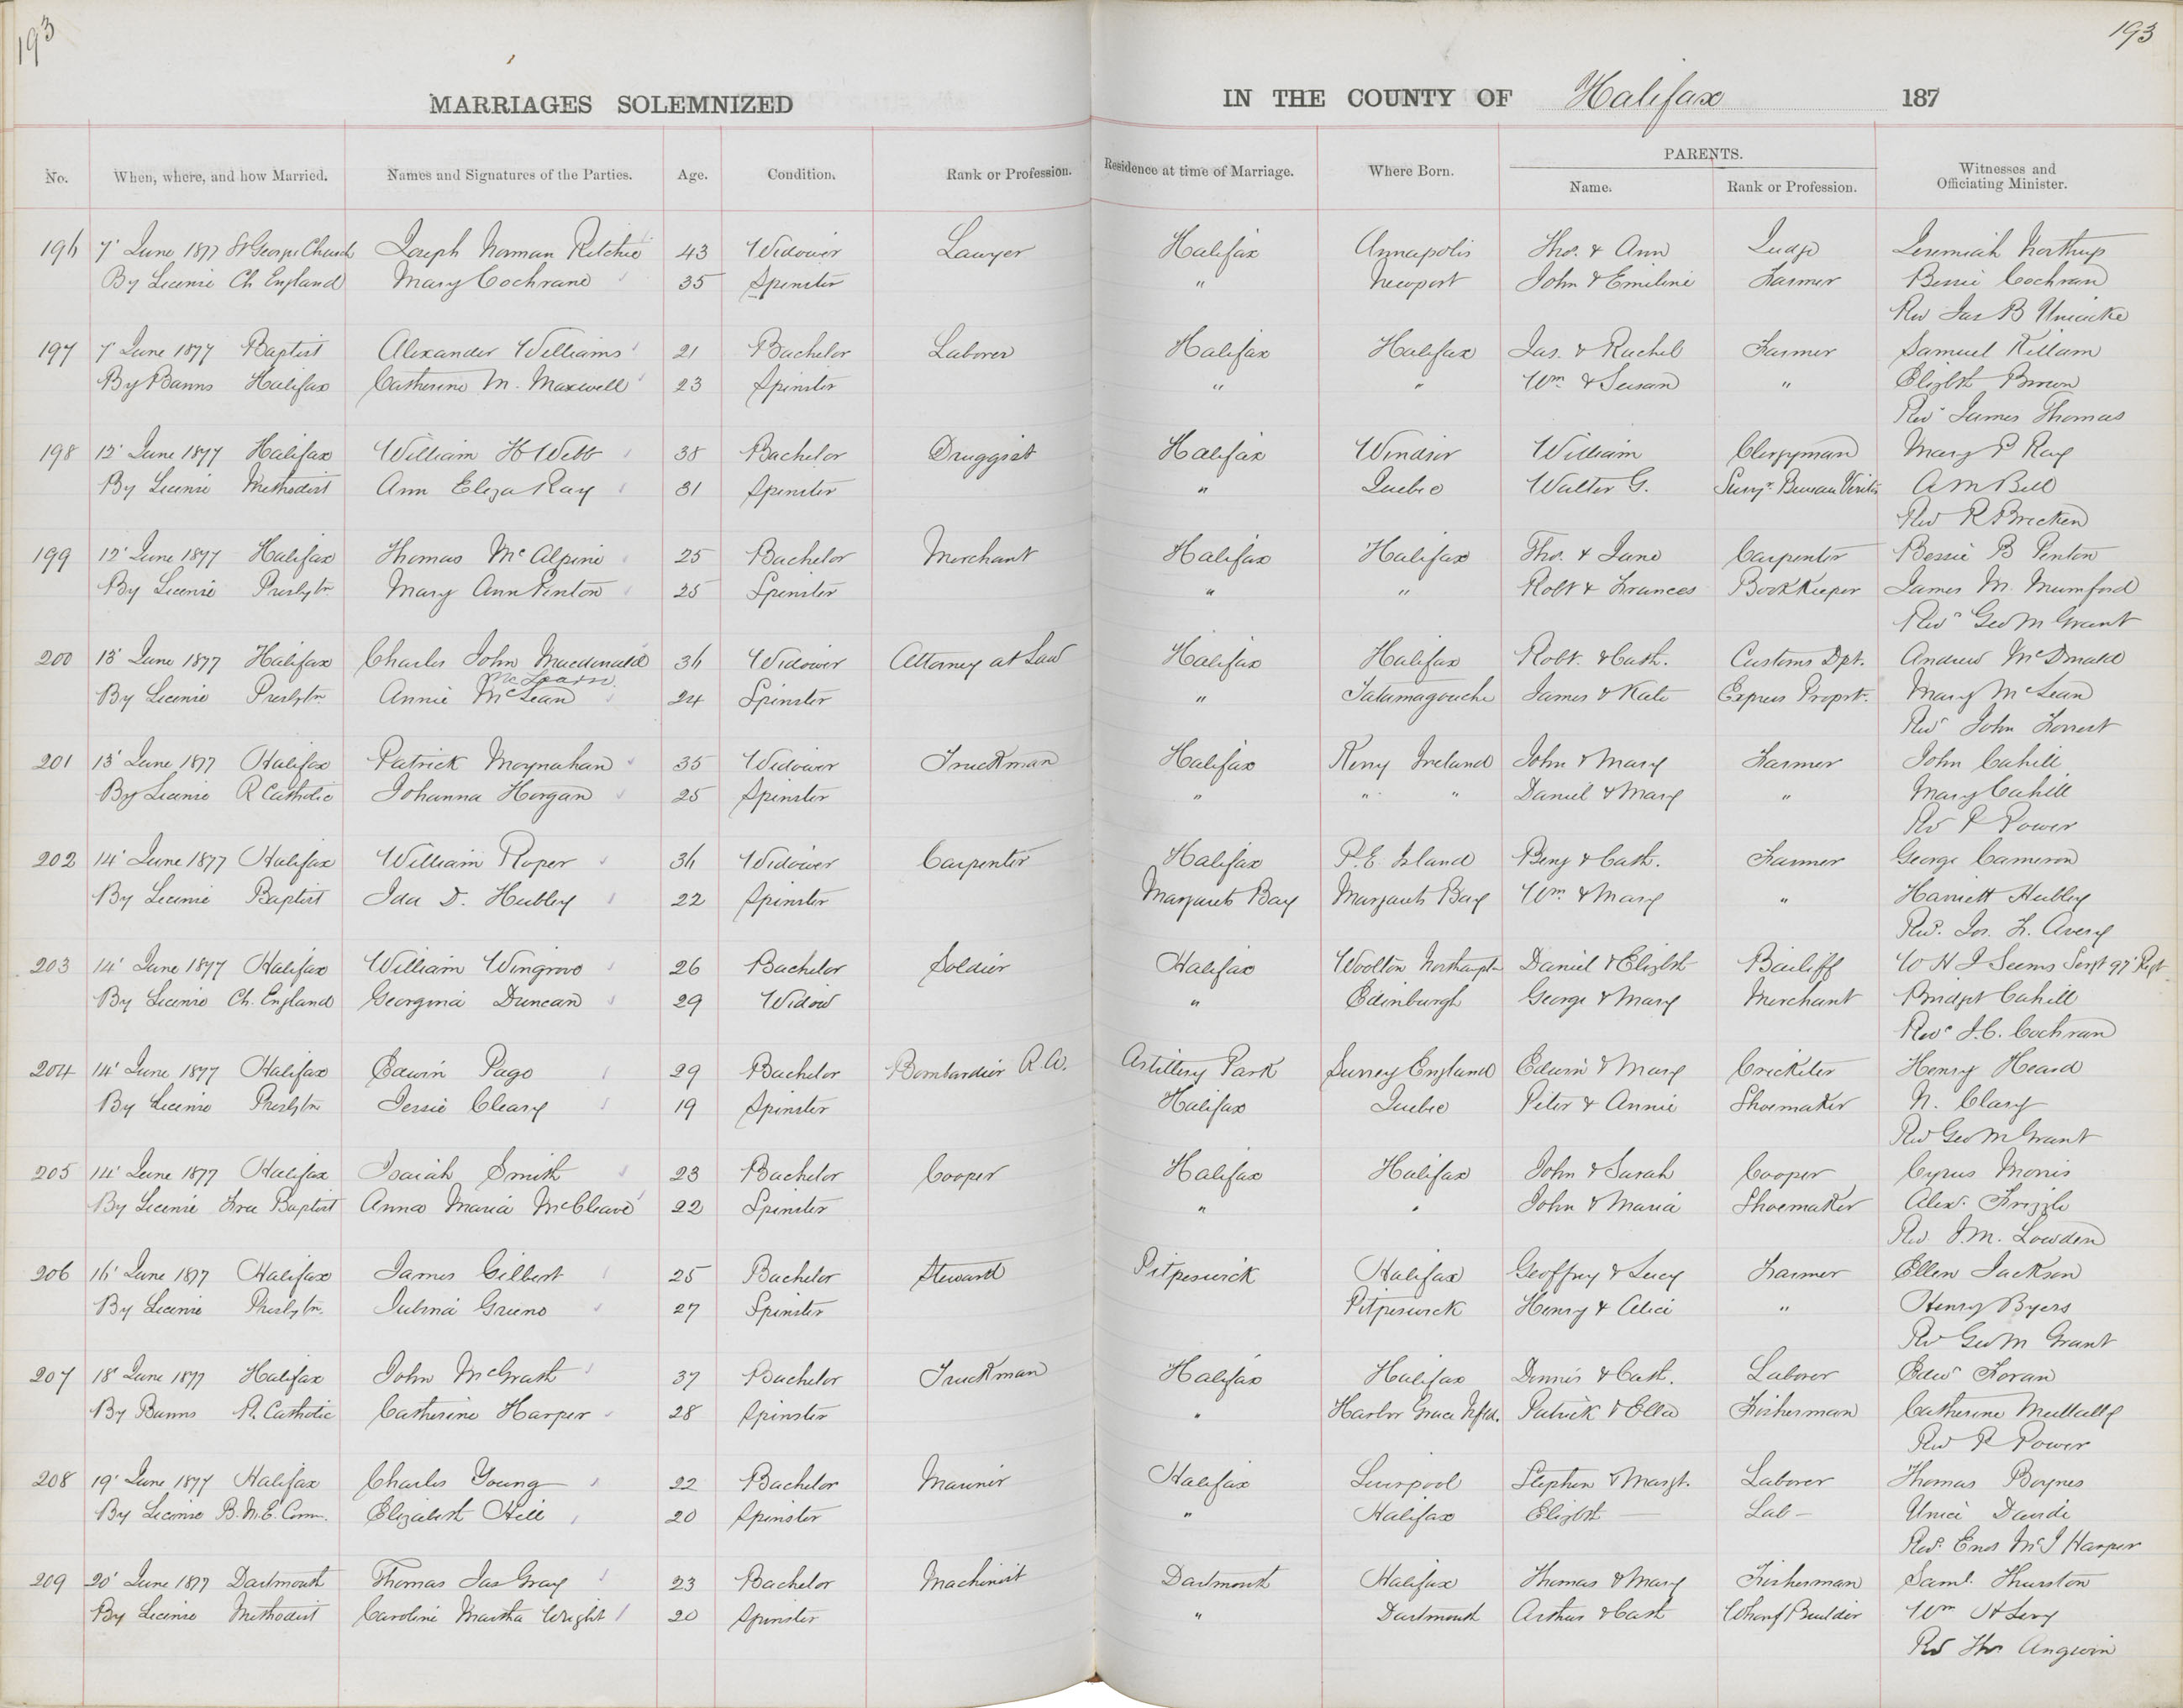 193
193
MARRIAGES SOLEMNIZED IN THE COUNTY OF Halifax 187
No. When, where, and how Married. Names and Signatures of the Parties. Age. Condition. Rank or Profession. Residence at time of Marriage. Where Born. PARENTS. Name. Rank or Profession. Witnesses and Officiating Minister.
196 7' June 1877 St George Church Joseph Norman Ritchie 43 Widower Lawyer Halifax Annapolis Tho. & Ann Judge Jeremiah Northup
By License Ch England Mary Cochrane 35 Spinster " Newport John & Emiline Farmer Bessie Cochran
Rev Jas B Uniacke
197 7 June 1877 Baptist Alexander Williams 21 Bachelor Laborer Halifax Halifax Jas. & Rachel Farmer Samuel Killam
By Banns Halifax Catherine M. Maxwell 23 Spinster " " Wm & Susan " Elizbth Brown
Rev James Thomas
198 12' June 1877 Halifax William H Webb 38 Bachelor Druggist Halifax Windsor William Clergyman Mary P Ray
By License Methodist Ann Eliza Ray 31 Spinster " Quebec Walter G. A M Bell
Rev R Brecken
199 12' June 1877 Halifax Thomas McAlpine 25 Bachelor Merchant Halifax Halifax Tho. & Jane Carpenter Bessie B Penton
By License Presbytn Mary Ann Penton 25 Spinster " " Robt & Frances BookKeeper James M. Mumford
Revd Geo M Grant
200 13' June 1877 Halifax Charles John Macdonald 36 Widower Attorney at Law Halifax Halifax Robt. & Cath. Customs Dpt. Andrew McDonald
McLearn
By License Presbytn Annie McLean 24 Spinster " Tatamagouche James & Kate Express Proprt. Mary McLean
Revd John Forrest
201 13' June 1877 Halifax Patrick Moynahan 35 Widower Truckman Halifax Kerry Ireland John & Mary Farmer John Cahill
By License R Catholic Johanna Horgan 25 Spinster " " " Daniel & Mary " Mary Cahill
Rev P Power
202 14' June 1877 Halifax William Roper 36 Widower Carpenter Halifax P. E. Island Benj & Cath. Farmer George Cameron
By License Baptist Ida D. Hubley 22 Spinster Margarets Bay Margarets Bay Wm & Mary " Harriett Hubley
Rev. Jos. F. Avery
203 14' June 1877 Halifax William Wingrove 26 Bachelor Soldier Halifax Woolton Northamptn Daniel & Elizbth Bailiff W H J Seems Sergt 97' Regt
By License Ch. England Georgina Duncan 29 Widow " Edinburgh George & Mary Merchant Bridget Cahill
Revd J. C. Cochran
204 14' June 1877 Halifax Edwin Page 29 Bachelor Bombardier R.A. Artillery Park Surrey England Edwin & Mary Cricketer Henry Heard
By License Presbytn Jessie Cleary 19 Spinster Halifax Quebec Peter & Annie Shoemaker N. Clary
Rev Geo M Grant
205 14' June 1877 Halifax Isaiah Smith 23 Bachelor Cooper Halifax Halifax John & Sarah Cooper Cyrus Morris
By License Free Baptist Anna Maria McCleave 22 Spinster " " John & Maria Shoemaker Alex. Frizzle
Rev. J. M. Lowden
206 16' June 1877 Halifax James Gilbert 25 Bachelor Steward Pitpeswick Halifax Geoffrey & Lucy Farmer Ellen Jackson
By License Presbytn. Julina Greeno 27 Spinster Pitpeswick Henry & Alice " Henry Byers
Rev Geo M Grant
207 18' June 1877 Halifax John McGrath 37 Bachelor Truckman Halifax Halifax Dennis & Cath. Laborer Edwd Foran
By Banns R. Catholic Catherine Harper 28 Spinster " Harbor Grace Nfld. Patrick & Ellen Fisherman Catherine Mullally
Rev P Power
208 19' June 1877 Halifax Charles Young 22 Bachelor Mariner Halifax Liverpool Stephen & Margt. Laborer Thomas Boynes
By License B. M. E. Conn. Elizabeth Hill 20 Spinster " Halifax Elizbth — Lab —
Rev. Enos McJ Harper
209 20' June 1877 Dartmouth Thomas Jas Gray 23 Bachelor Machinist Dartmouth Halifax Thomas & Mary Fisherman Saml. Thurston
By License Methodist Caroline Martha Wright 20 Spinster " Dartmouth Arthur & Cath Wharf Builder Wm H Levy
Rev Tho. Angwin